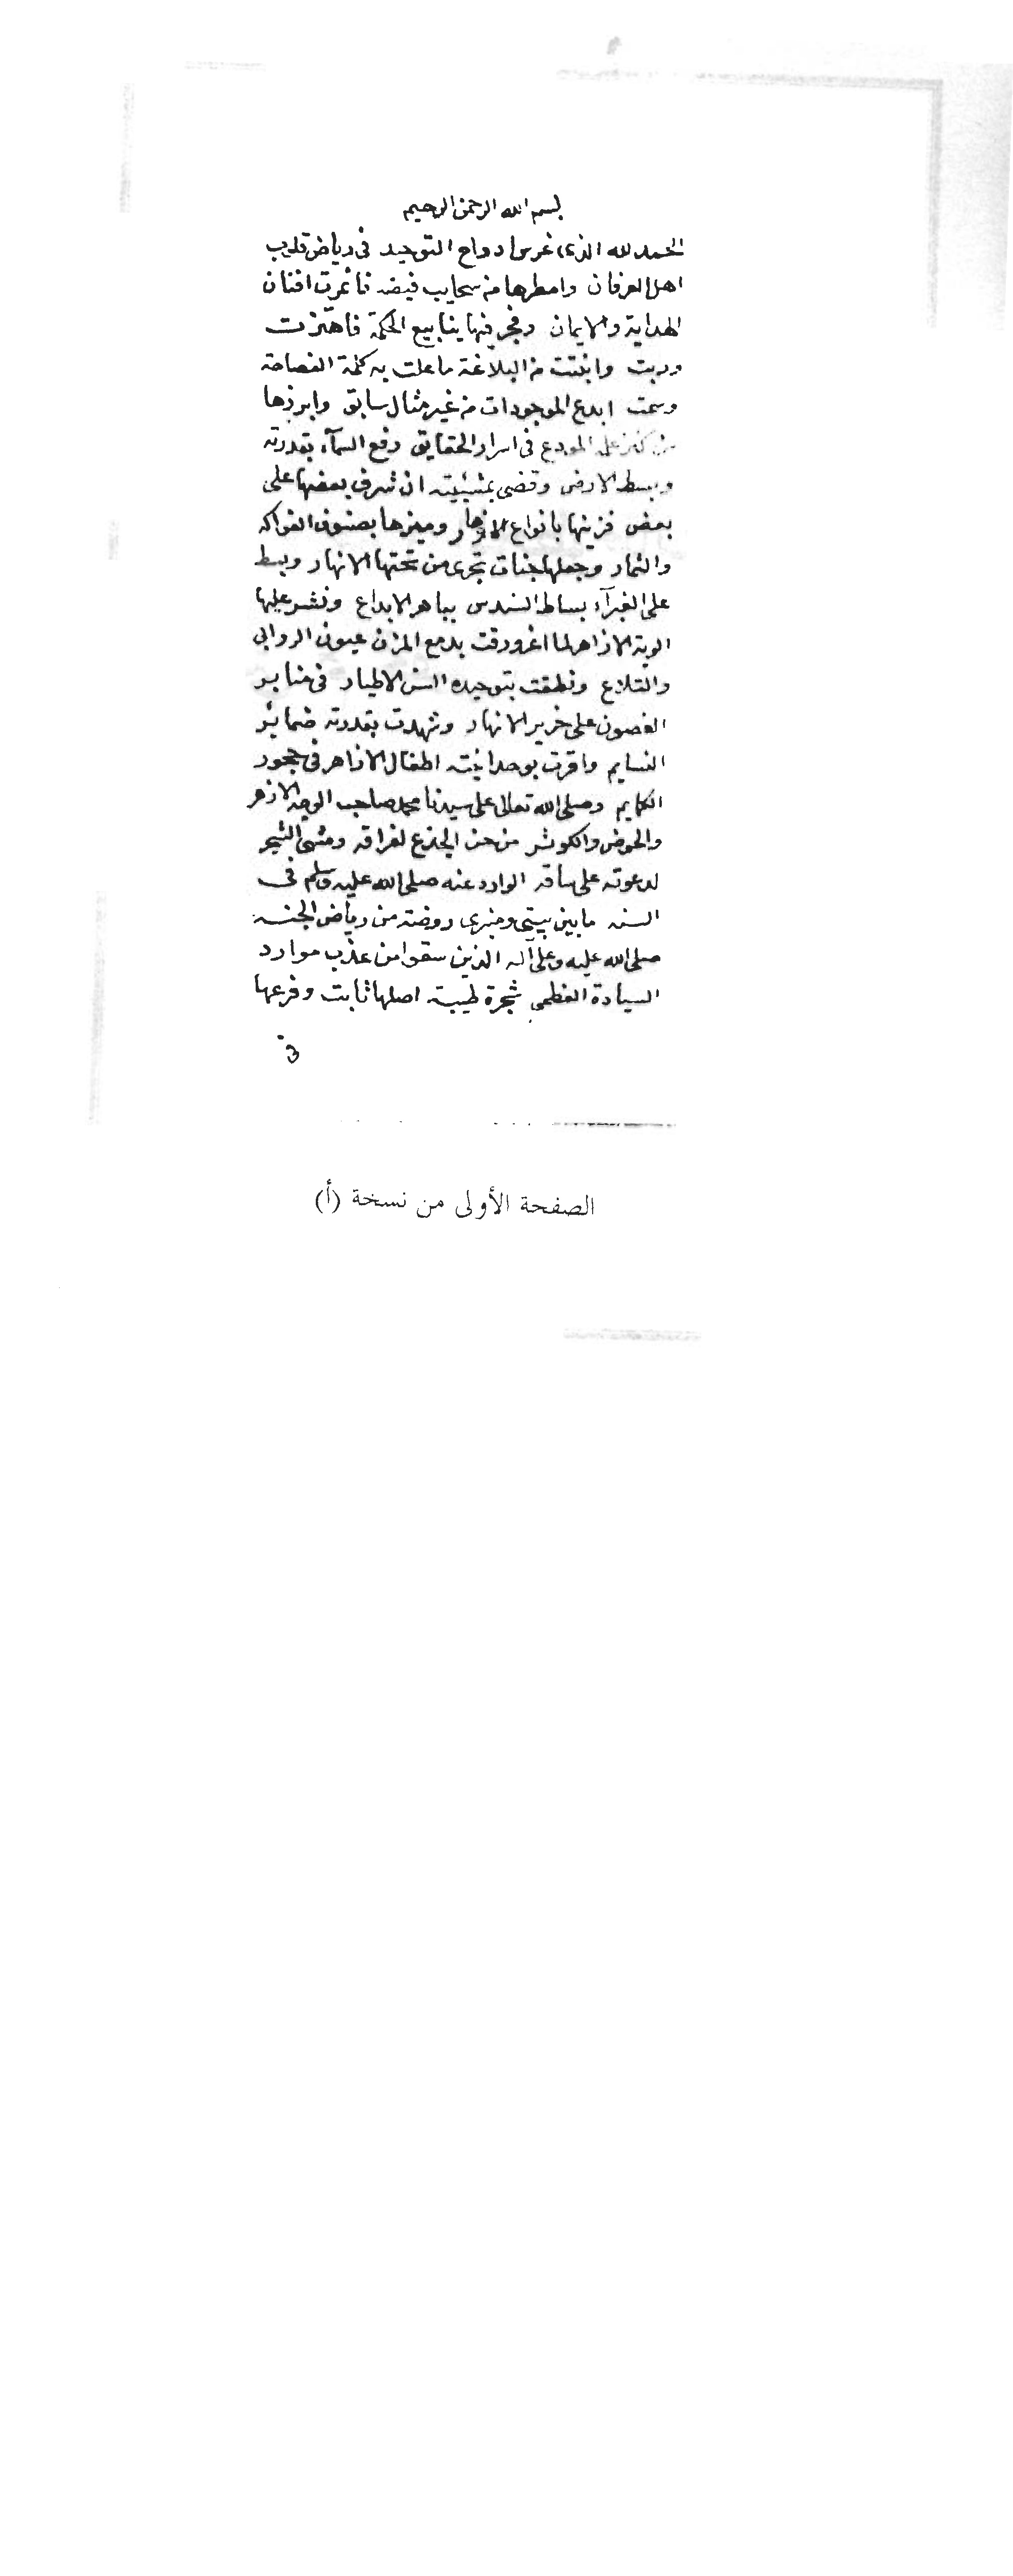 بسم الله الرحمن الرحيم
الحمد لله الذى غرس ادواح التوحيد فى رياض قلوب
اهل العرفان وامطرها من سحايب فيضه فاثمرت افنان
الهداية والايمان وفجر فيها ينابيع الحكمة فاهتزت
وربت وانبتت من البلاغة ما علت به كلمة الفصاحة
وسمت ابدع الموجودات من غير مثال سابق وابرزها
من كنز علمه المودع فى اسرار الحقايق رفع السمآء بقدرته
وبسط الارض وقضى بمشيئته ان شرف بعضها على
بعض فزينها بانواع الازهار وميزها بصنوف الفواكه
والثمار وجعلها جنات تجرى من تحتها الانهار وبسط
على الغبرآء بساط السندس بباهر الابداع ونشر عليها
الوية الازاهر لما اغرورقت بدمع المزن عيون الروابى
والتلاع ونطقت بتوحيده السن الاطيار فى منابر
الغصون على خرير الانهار وشهدت بقدرته ضمائر
النسايم واقرت بوحدانيته اطفال الازاهر فى حجور
الكمايم وصلى الله تعالى على سيدنا محمد صاحب الوجه الازهر
والحوض والكوثر من حن الجذع لفراقه ومشى الشجر
لدعوته على ساقه الوارد عنه صلى الله عليه وسلم فى
السنه ما بين بيتى ومنبرى روضة من رياض الجنه
صلى الله عليه وعلى آله الذين سقوا من عذب موارد
السيادة العظمى شجرة طيبة اصلها ثابت وفرعها
فى
الصفحة الأولى من نسخة (أ)